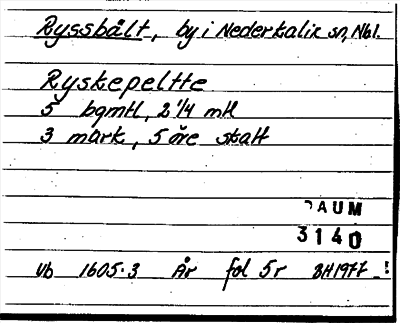 Ryssbält, by i Nederkalix sn, Nbl.
Ryskepeltte
5 bgmtl, 2 1/4 mtl
3 mark, 5 öre skatt
DAUM
3140
Vb 1605:3 År fol 5r BH1977